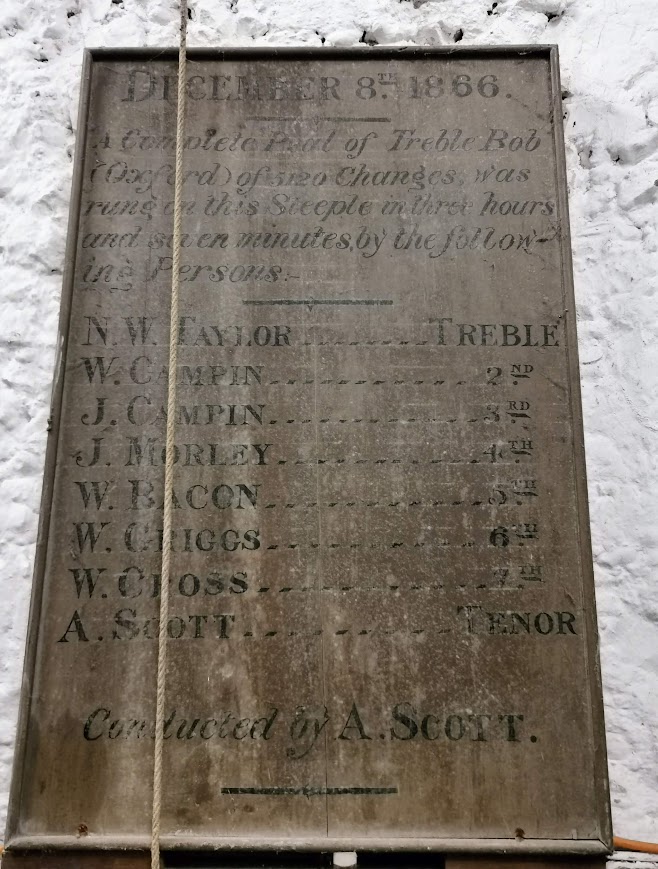 DECEMBER 8TH. 1866.
A Complete Peal of Treble Bob
(Oxford) of 5120 Changes, was
rung in this Steeple in three hours
and seven minutes, by the follow-
ing Persons:-
N. W. TAYLOR ........ TREBLE
W. CAMPIN ............ 2ND.
J. CAMPIN ............ 3RD.
J. MORLEY ............ 4TH.
W. BACON ............ 5TH.
W. GRIGGS ............ 6TH.
W. CROSS ............ 7TH.
A. SCOTT ............ TENOR
Conducted by A. SCOTT.